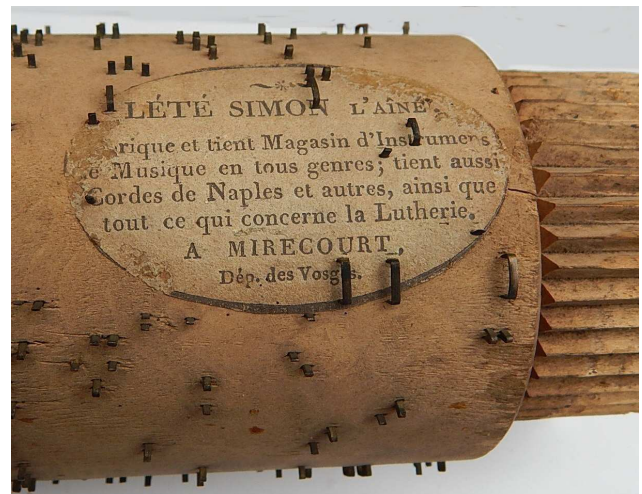 LÉTÉ SIMON L'AÎNÉ
rique et tient Magasin d'Instrumens
e Musique en tous genres; tient aussi
Cordes de Naples et autres, ainsi que
tout ce qui concerne la Lutherie.
A MIRECOURT,
Dép. des Vosges.